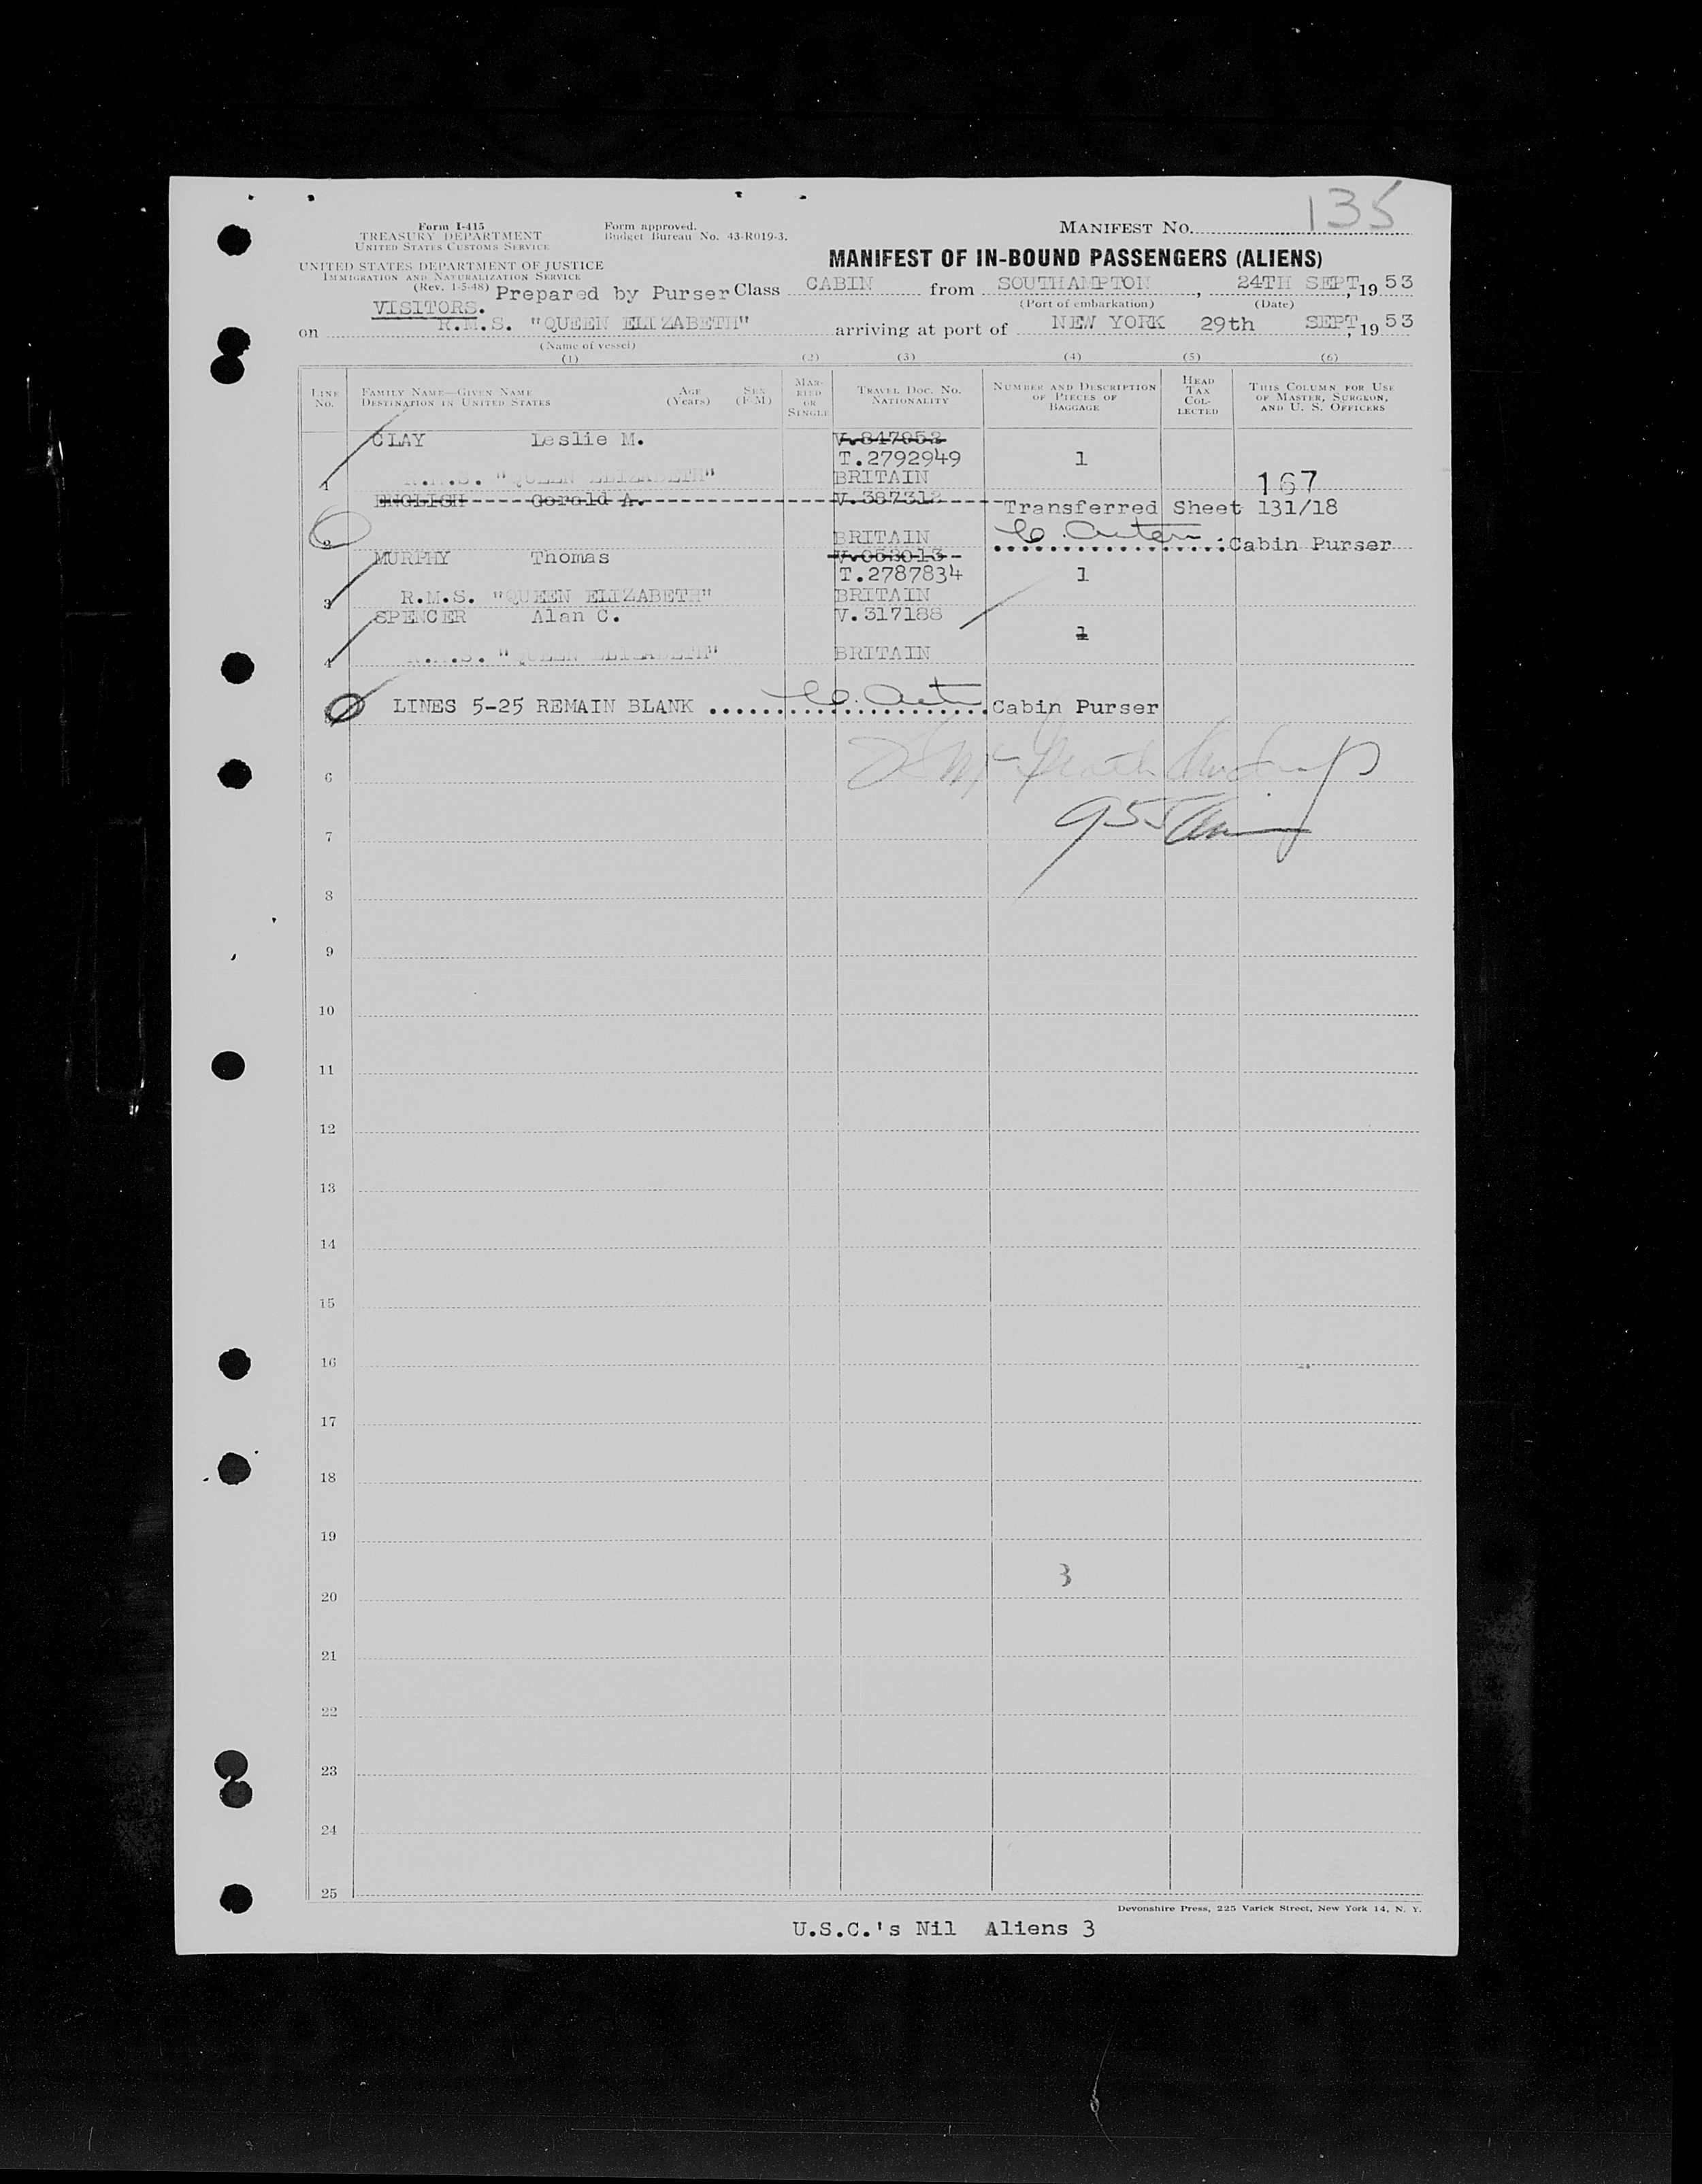 135
Form I-415
TREASURY DEPARTMENT
UNITED STATES CUSTOMS SERVICE
Form approved.
Budget Bureau No. 43-R019-3.
MANIFEST NO.
UNITED STATES DEPARTMENT OF JUSTICE
IMMIGRATION AND NATURALIZATION SERVICE
(Rev. 1-5-48)
MANIFEST OF IN-BOUND PASSENGERS (ALIENS)
Prepared by Purser Class CABIN from SOUTHAMPTON, 24TH SEPT, 1953
(Port of embarkation) (Date)
VISITORS.
on R.M.S. "QUEEN ELIZABETH" arriving at port of NEW YORK 29th SEPT, 1953
(Name of vessel)
(1) (2) (3) (4) (5) (6)
LINE NO.
FAMILY NAME—GIVEN NAME
DESTINATION IN UNITED STATES
AGE (Years)
SEX (F-M)
MARRIED OR SINGLE
TRAVEL DOC. NO.
NATIONALITY
NUMBER AND DESCRIPTION OF PIECES OF BAGGAGE
HEAD TAX COLLECTED
THIS COLUMN FOR USE OF MASTER, SURGEON, AND U. S. OFFICERS
CLAY Leslie M. V.847053
T.2792949 1
1 R.M.S. "QUEEN ELIZABETH" BRITAIN 167
ENGLISH Gerold A. V.387312 Transferred Sheet 131/18
2 BRITAIN Cabin Purser
MURPHY Thomas V.053013
T.2787834 1
3 R.M.S. "QUEEN ELIZABETH" BRITAIN
SPENCER Alan C. V.317188
1
4 R.M.S. "QUEEN ELIZABETH" BRITAIN
5 LINES 5-25 REMAIN BLANK Cabin Purser
6
7
8
9
10
11
12
13
14
15
16
17
18
19
3
20
21
22
23
24
25
Devonshire Press, 225 Varick Street, New York 14, N. Y.
U.S.C.'s Nil Aliens 3